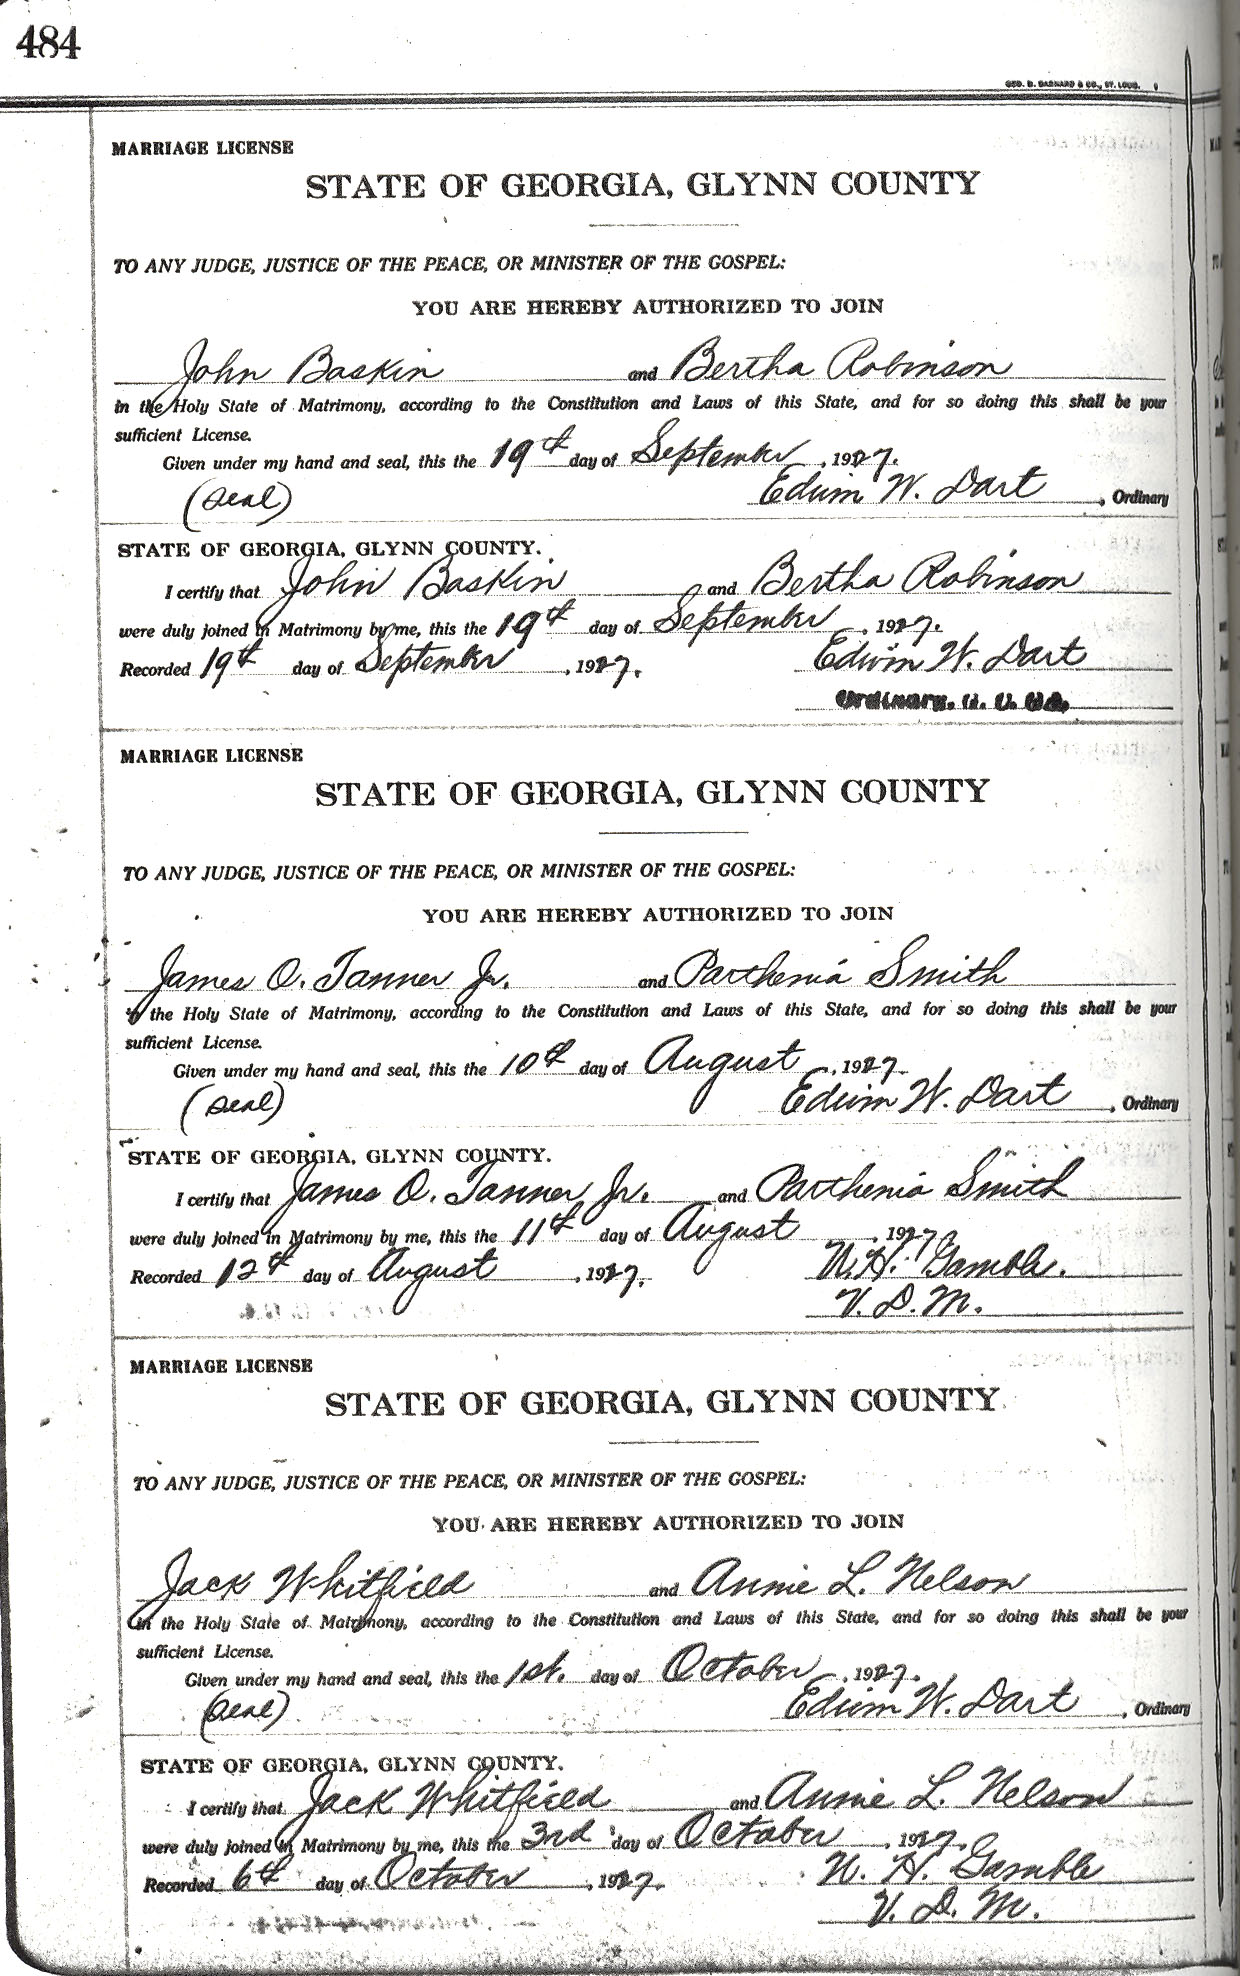 484
GEO. D. BARNARD & CO., ST. LOUIS.
MARRIAGE LICENSE
STATE OF GEORGIA, GLYNN COUNTY
TO ANY JUDGE, JUSTICE OF THE PEACE, OR MINISTER OF THE GOSPEL:
YOU ARE HEREBY AUTHORIZED TO JOIN
John Baskin and Bertha Robinson
in the Holy State of Matrimony, according to the Constitution and Laws of this State, and for so doing this shall be your
sufficient License.
Given under my hand and seal, this the 19th day of September, 1927.
(Seal) Edwin W. Dart, Ordinary
STATE OF GEORGIA, GLYNN COUNTY.
I certify that John Baskin and Bertha Robinson
were duly joined in Matrimony by me, this the 19th day of September, 1927.
Recorded 19th day of September, 1927. Edwin W. Dart
Ordinary. G. C. Ga.
MARRIAGE LICENSE
STATE OF GEORGIA, GLYNN COUNTY
TO ANY JUDGE, JUSTICE OF THE PEACE, OR MINISTER OF THE GOSPEL:
YOU ARE HEREBY AUTHORIZED TO JOIN
James O. Tanner Jr. and Parthenia Smith
in the Holy State of Matrimony, according to the Constitution and Laws of this State, and for so doing this shall be your
sufficient License.
Given under my hand and seal, this the 10th day of August, 1927.
(Seal) Edwin W. Dart, Ordinary
STATE OF GEORGIA, GLYNN COUNTY.
I certify that James O. Tanner Jr. and Parthenia Smith
were duly joined in Matrimony by me, this the 11th day of August, 1927.
Recorded 12th day of August, 1927. W. H. Gamble.
V. D. M.
MARRIAGE LICENSE
STATE OF GEORGIA, GLYNN COUNTY
TO ANY JUDGE, JUSTICE OF THE PEACE, OR MINISTER OF THE GOSPEL:
YOU ARE HEREBY AUTHORIZED TO JOIN
Jack Whitfield and Annie L. Nelson
in the Holy State of Matrimony, according to the Constitution and Laws of this State, and for so doing this shall be your
sufficient License.
Given under my hand and seal, this the 1st. day of October, 1927.
(Seal) Edwin W. Dart, Ordinary
STATE OF GEORGIA, GLYNN COUNTY.
I certify that Jack Whitfield and Annie L. Nelson
were duly joined in Matrimony by me, this the 3rd day of October, 1927.
Recorded 6th day of October, 1927. W. H. Gamble
V. D. M.